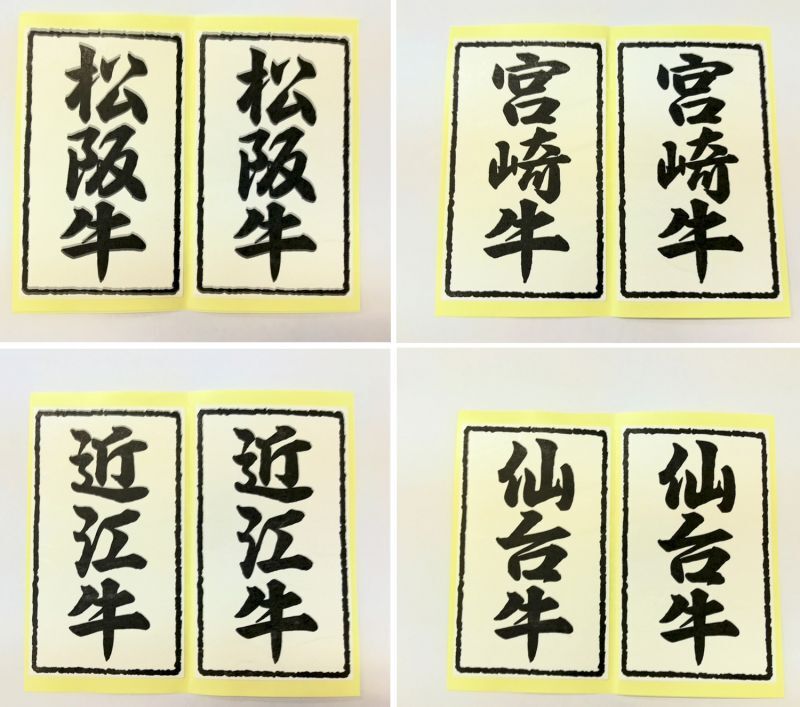 松阪牛
松阪牛
宮崎牛
宮崎牛
近江牛
近江牛
仙台牛
仙台牛